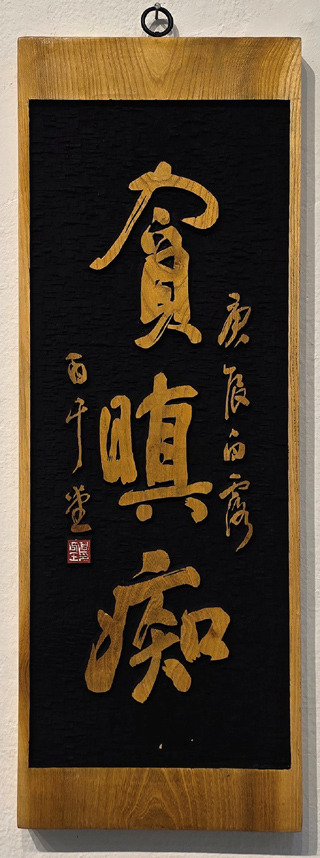 庚辰白露
貪瞋痴
百千堂